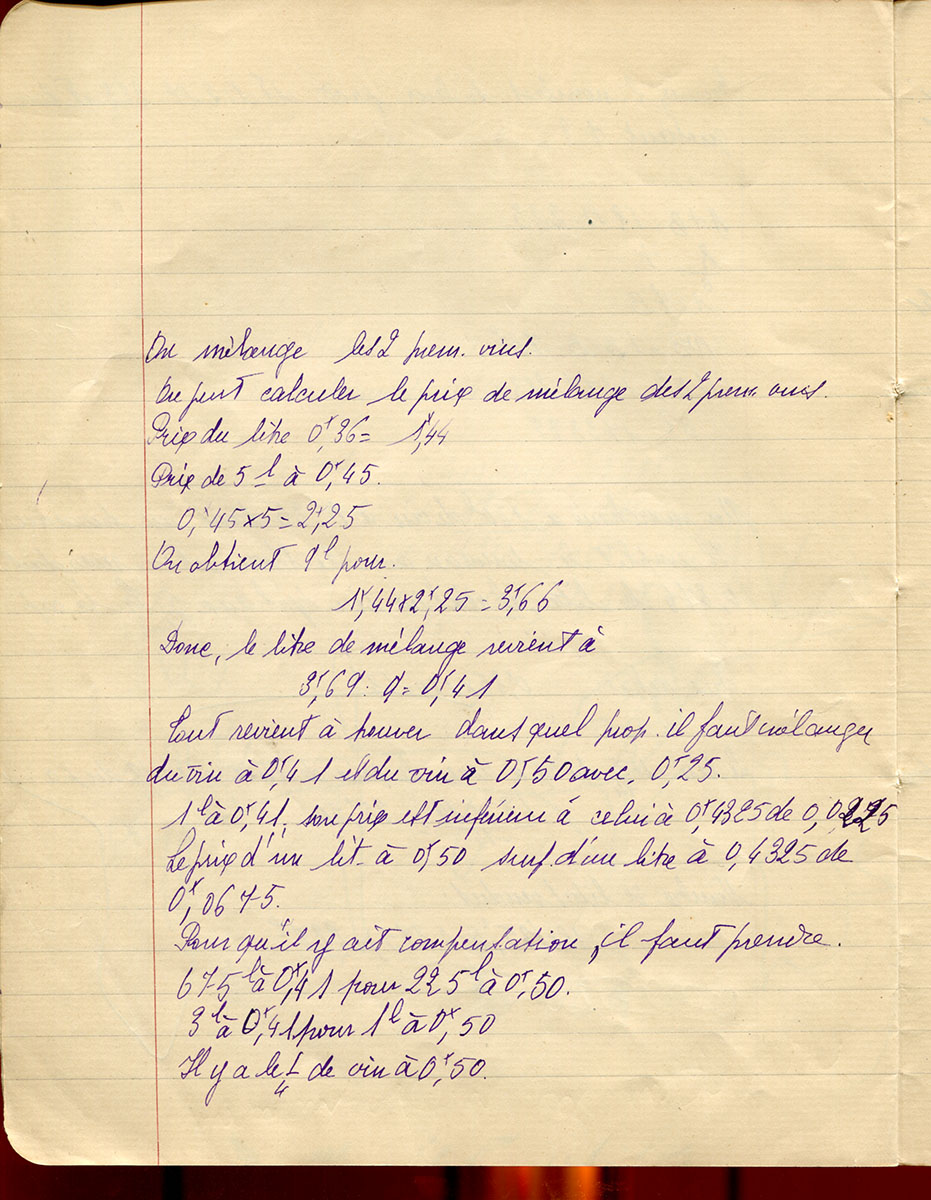 On mélange les 2 prem. vins.
On peut calculer le prix de mélange des 2 prem. vins.
Prix du litre 0f,36= 1f,44
Prix de 5l à 0f,45.
0,f45x5=2f,25
On obtient 9l pour.
1f,44x2f,25=3f,66
Donc, le litre de mélange revient à
3f,69: 9=0f,41
Tout revient à trouver dans quel prop. il faut mélanger
du vin à 0f,41 et du vin à 0f,50 avec, 0f,25.
1l à 0f,41, son prix est inférieur à celui à 0f,4325 de 0,0225
Le prix d'un lit. à 0f,50 surf d'un litre à 0,4325 de
0f,0675.
Pour qu'il y ait compensation, il faut prendre.
675l à 0f,41 pour 225l à 0f,50.
3l à 0f,41 pour 1l à 0f,50
Il y a le 1/4 de vin à 0f,50.